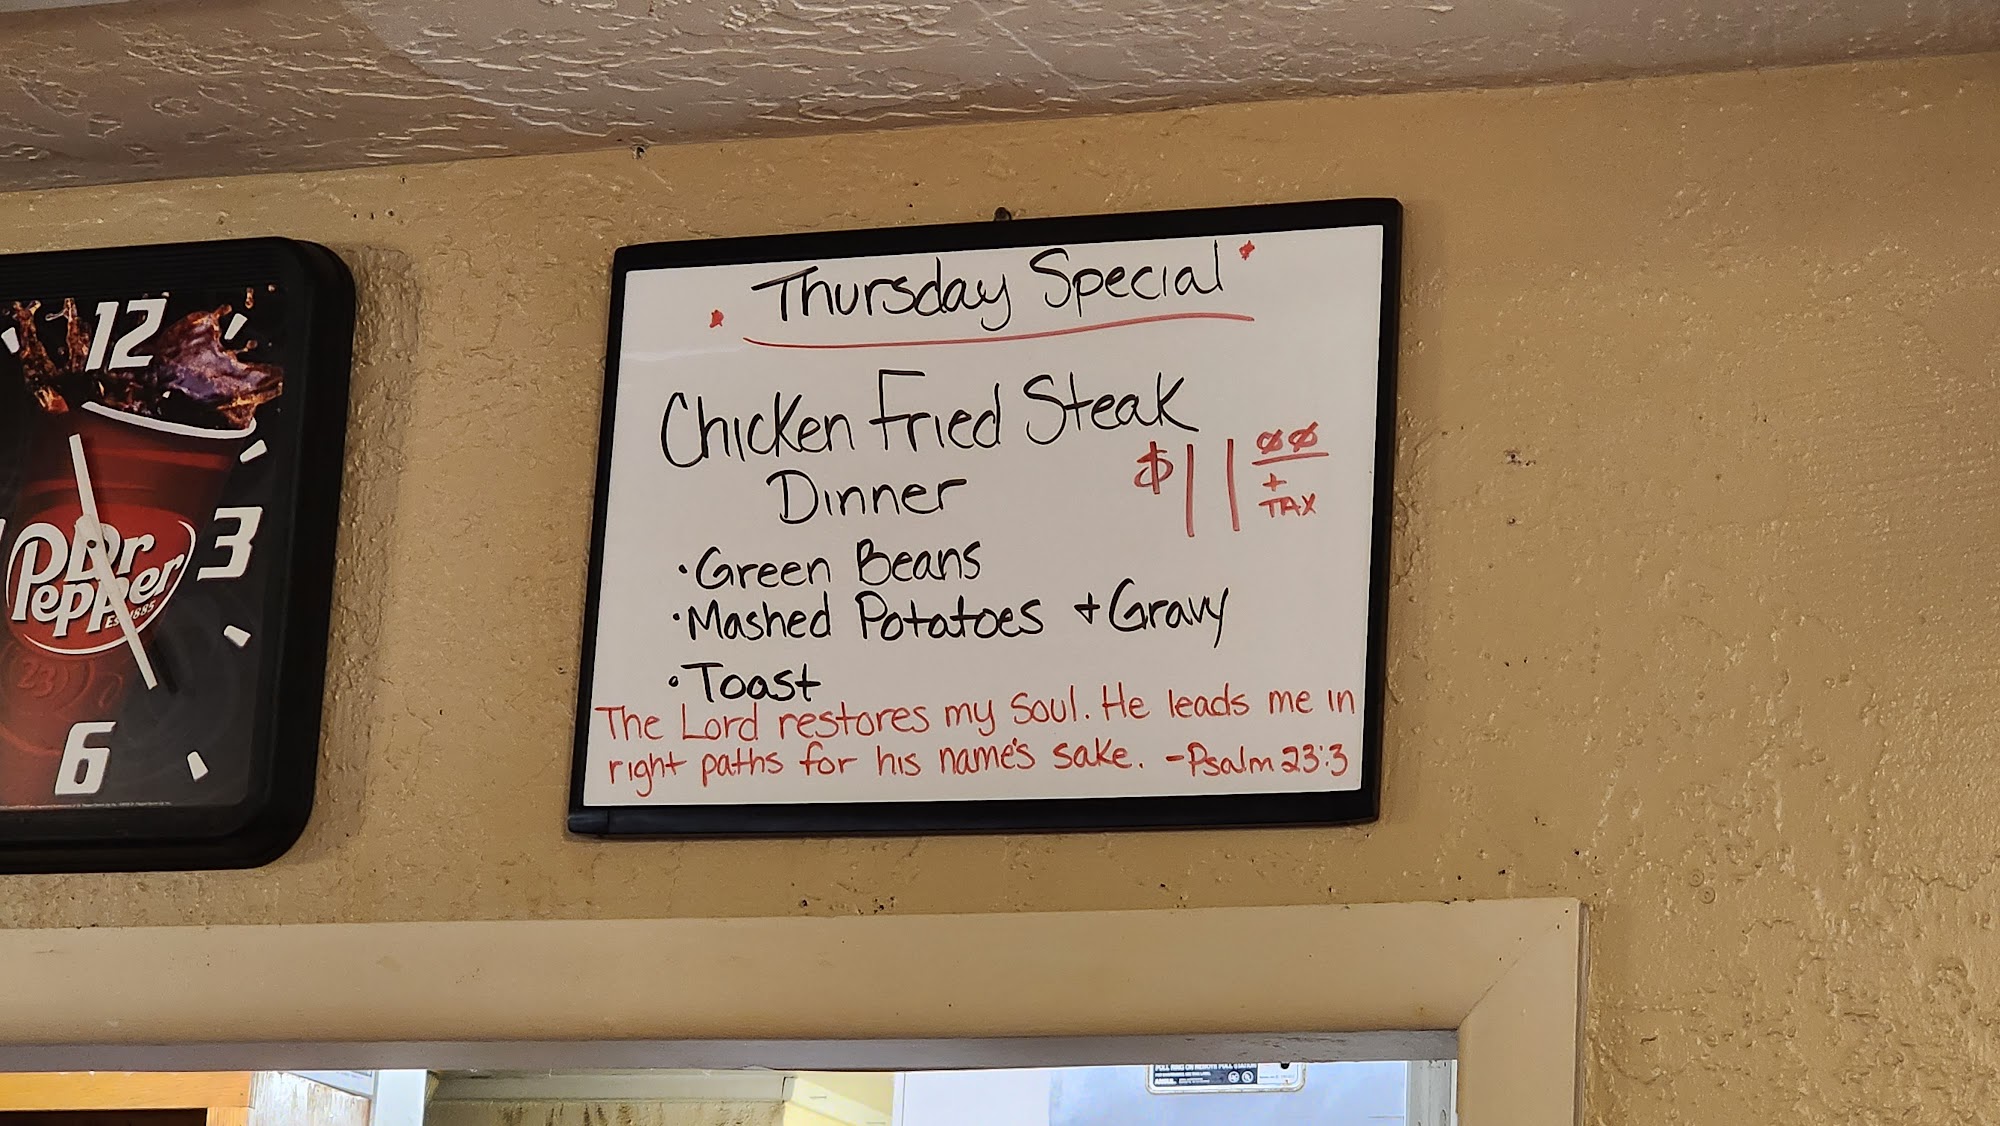 Thursday Special
Chicken Fried Steak
Dinner
$11 00
+
TAX
• Green Beans
• Mashed Potatoes + Gravy
• Toast
The Lord restores my soul. He leads me in
right paths for his name's sake. - Psalm 23:3
12
3
6
Dr
Pepper
Est. 1885
23
PULL RING ON REMOTE PULL STATION
ANSUL